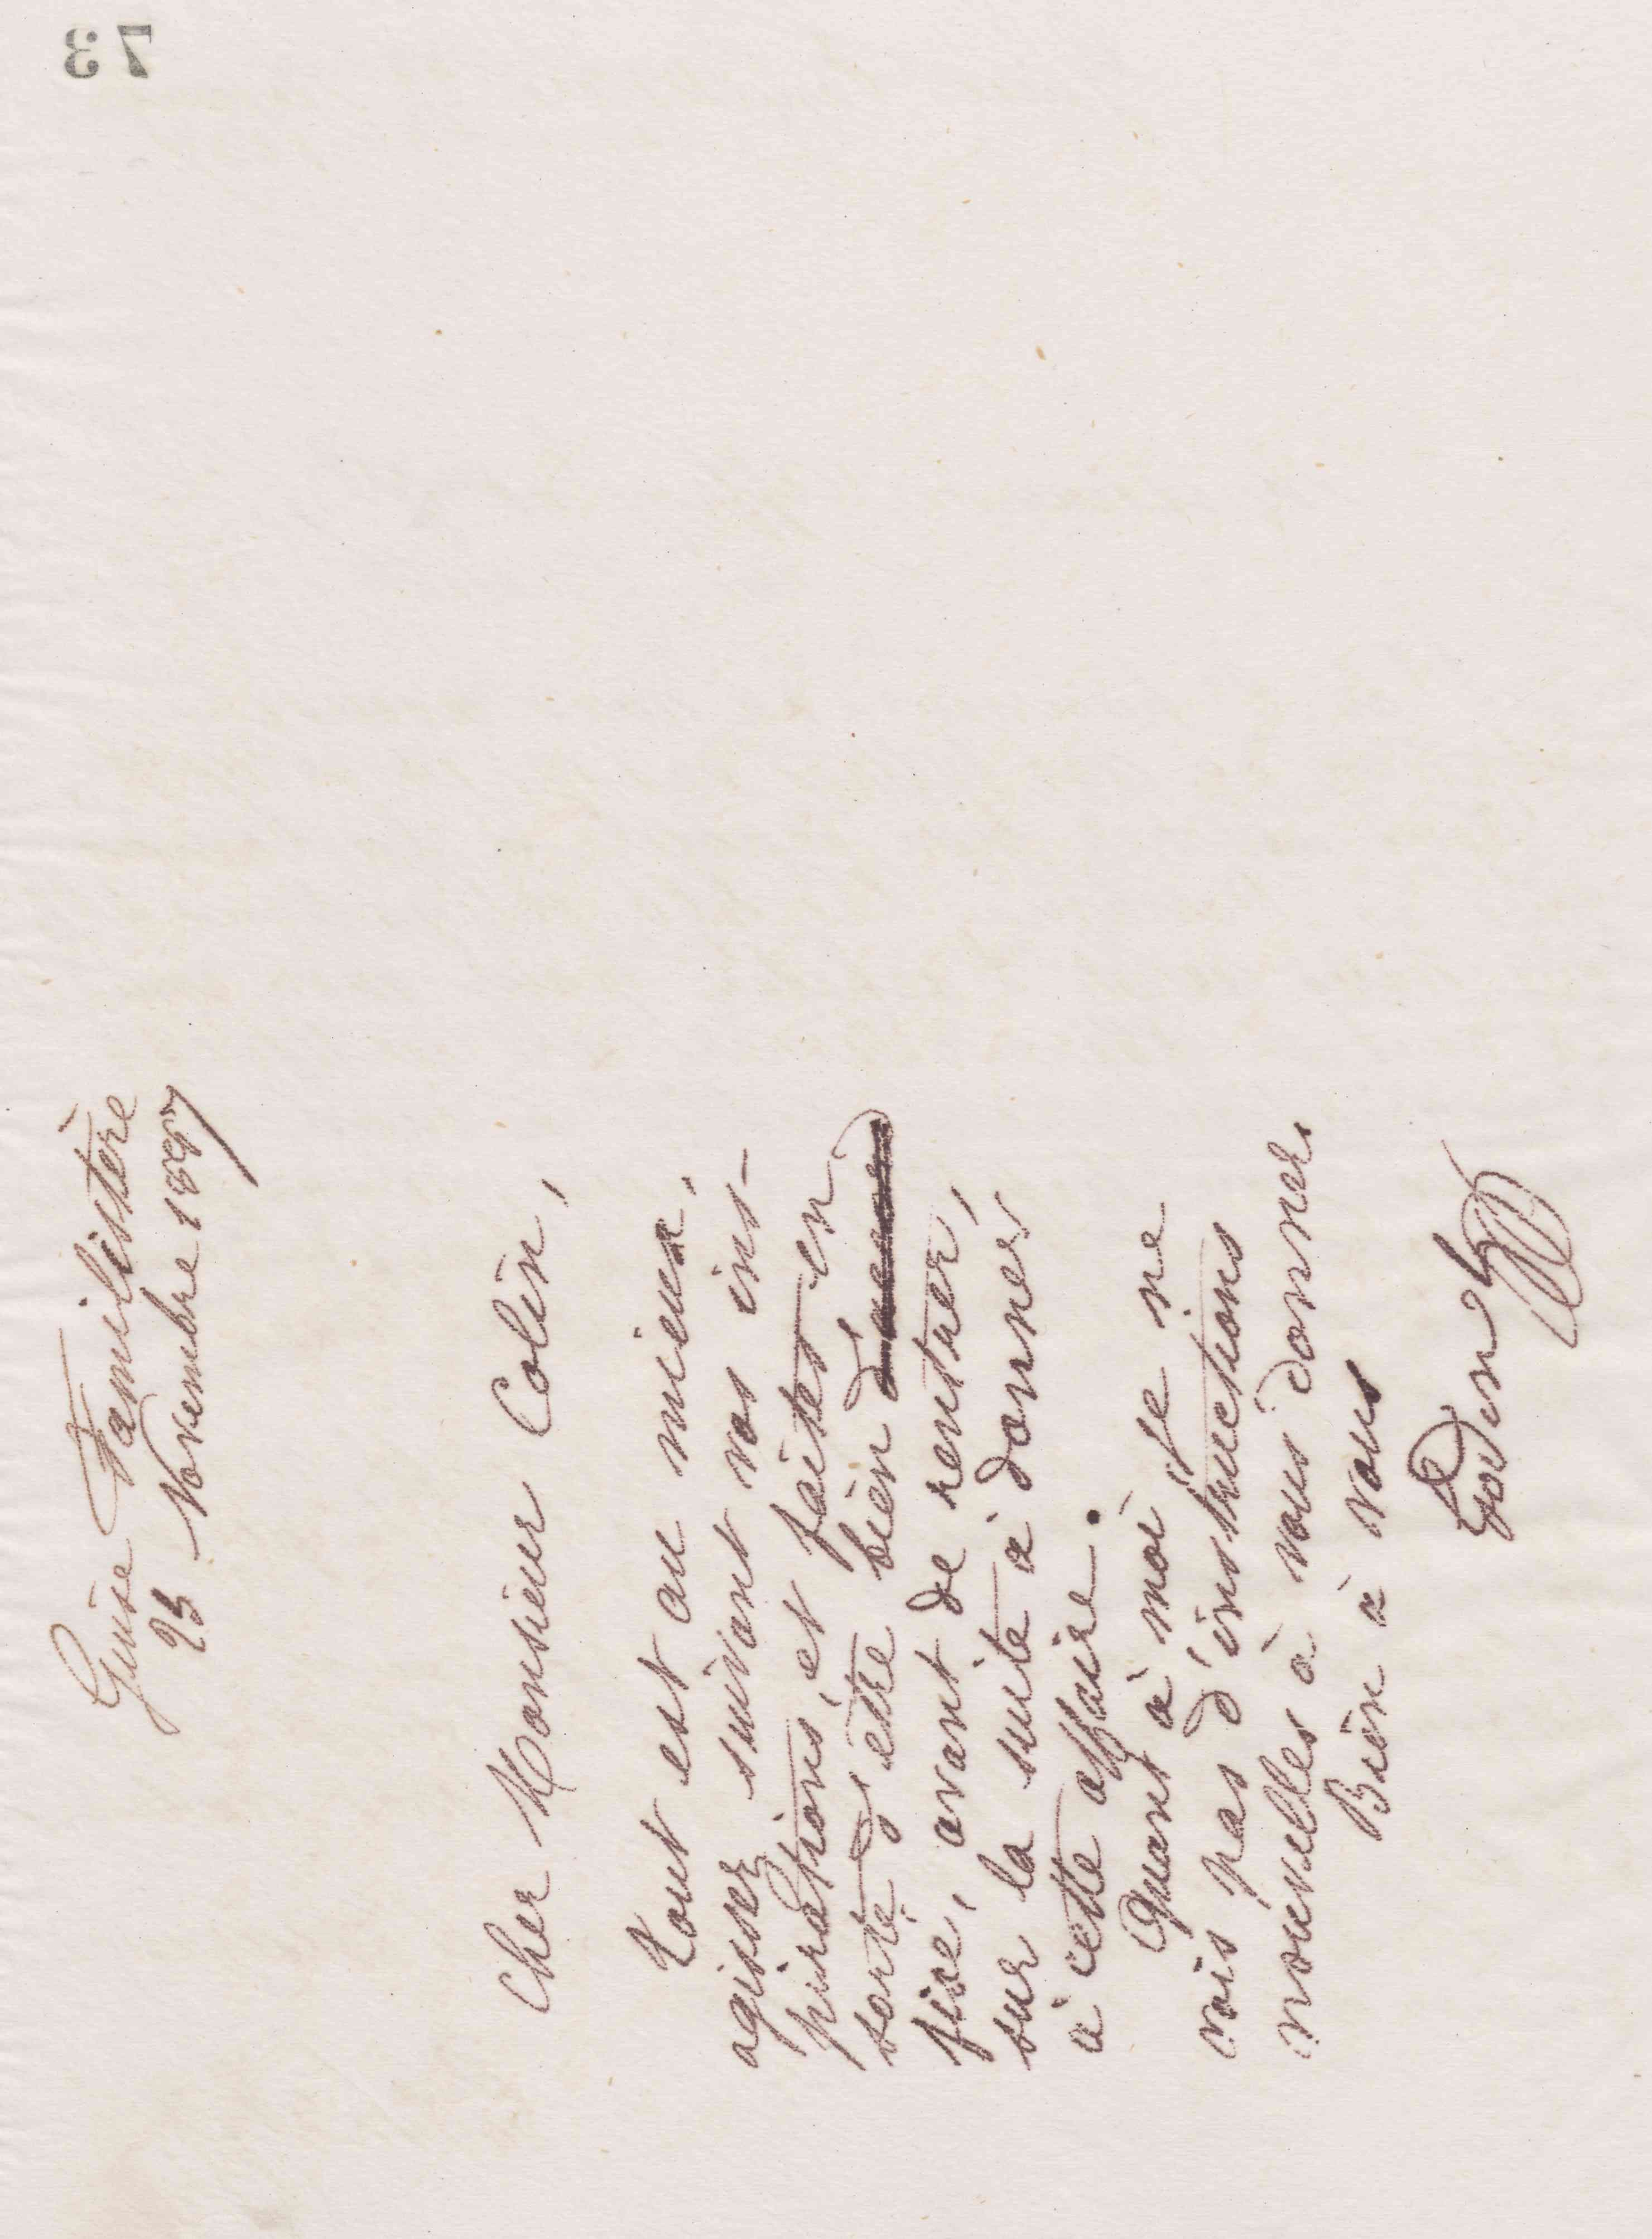 73
Guise Familistère
25 Novembre 1887
Cher Monsieur Colin,
Tout est au mieux,
agissez suivant vos ins-
pirations, et faites en
sorte d'être bien
fixé, avant de rentrer,
sur la suite à donner
à cette affaire.
Quant à moi je ne
vois pas d'instructions
nouvelles à vous donner.
Bien à vous
Godin